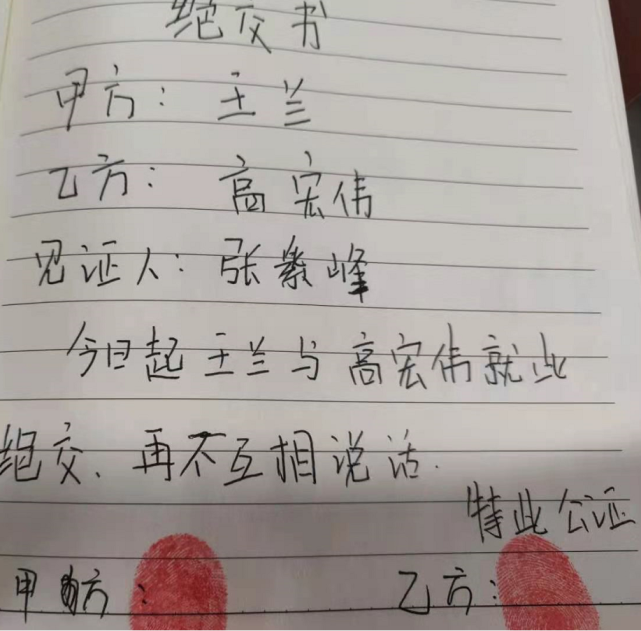 绝交书
甲方：王兰
乙方：高宏伟
见证人：张絮峰
今日起王兰与高宏伟就此
绝交、再不互相说话.
特此公证
甲方：
乙方：